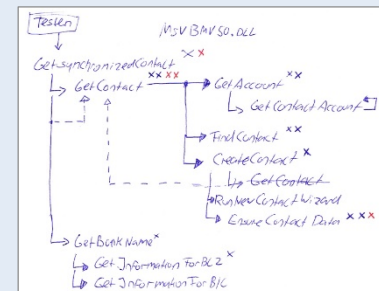 Testen
MSVBMV50.DLL
GetSynchronizedContact xx
GetContact xxxx
GetAccount xx
GetContactAccount
FindContact xx
CreateContact x
GetContact
RunNewContactWizard
Ensure Contact Data xxx
GetBankName x
Get Information For BLZ x
Get Information For BIC